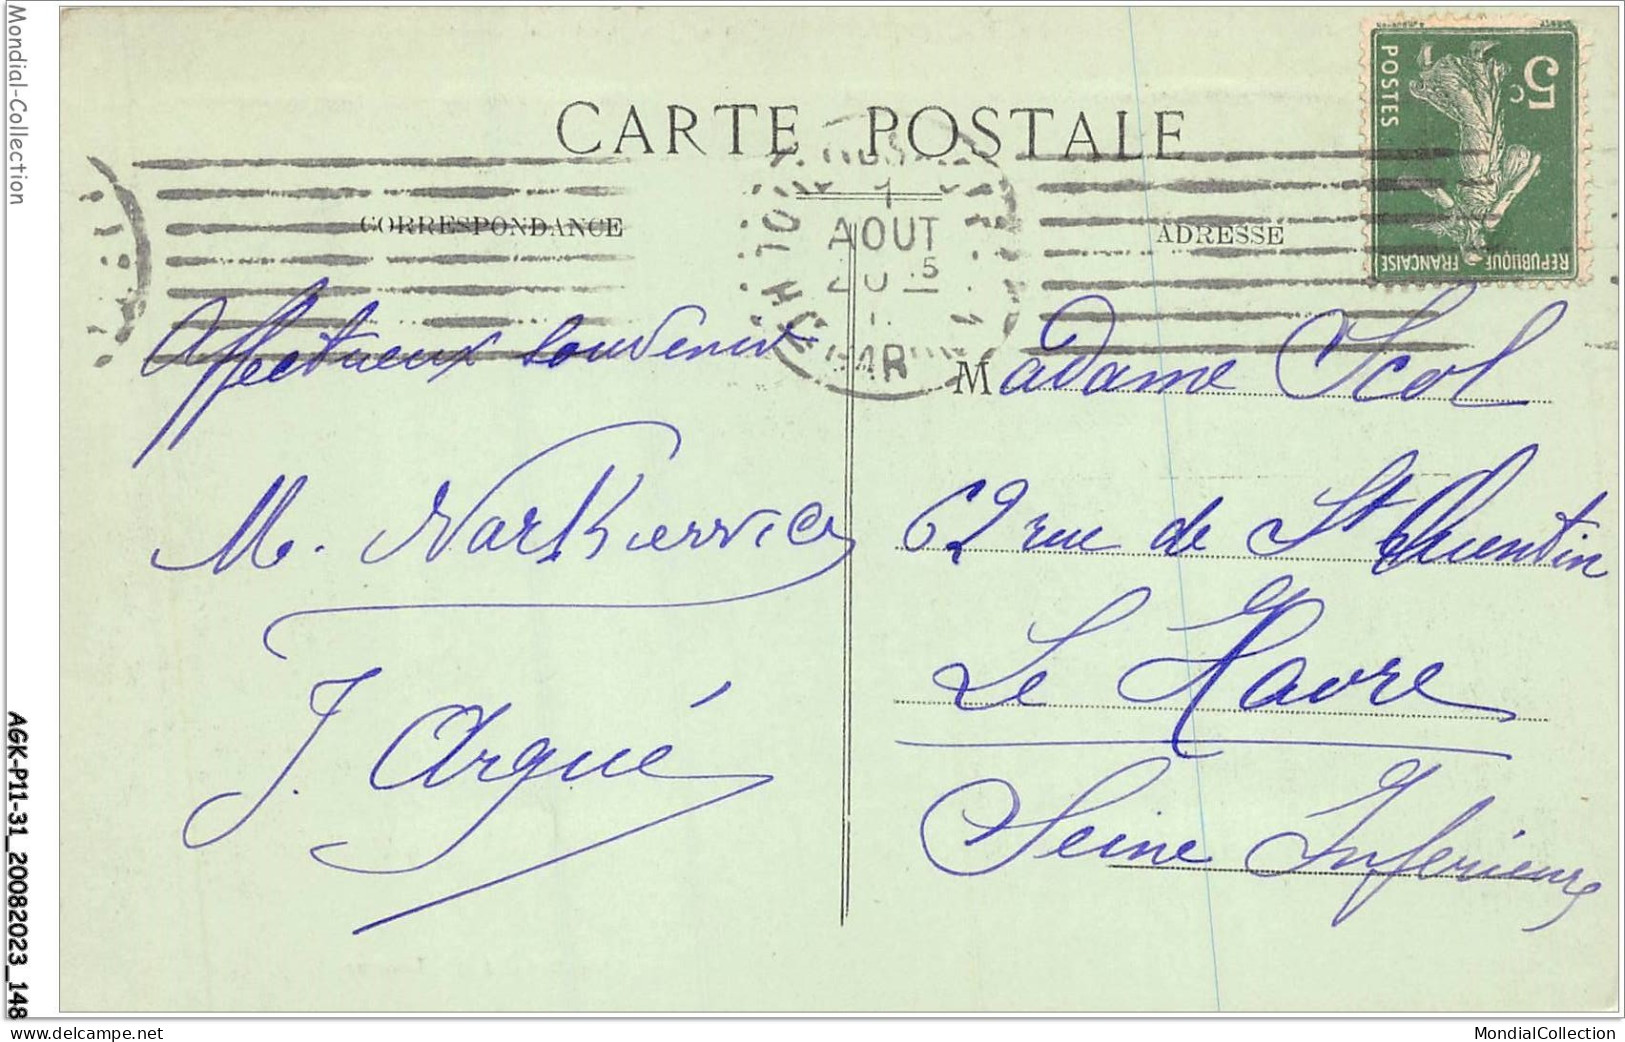 CARTE POSTALE
CORRESPONDANCE
ADRESSE
5c
POSTES
REPUBLIQUE FRANÇAISE
AOUT
Affectueux Souvenir
M. Narkiervice
J. Argué
Madame Scol
62 rue de St Quentin
Le Havre
Seine Inferieure
Mondial-Collection
AGK-P11-31_20082023_148
www.delcampe.net
MondialCollection